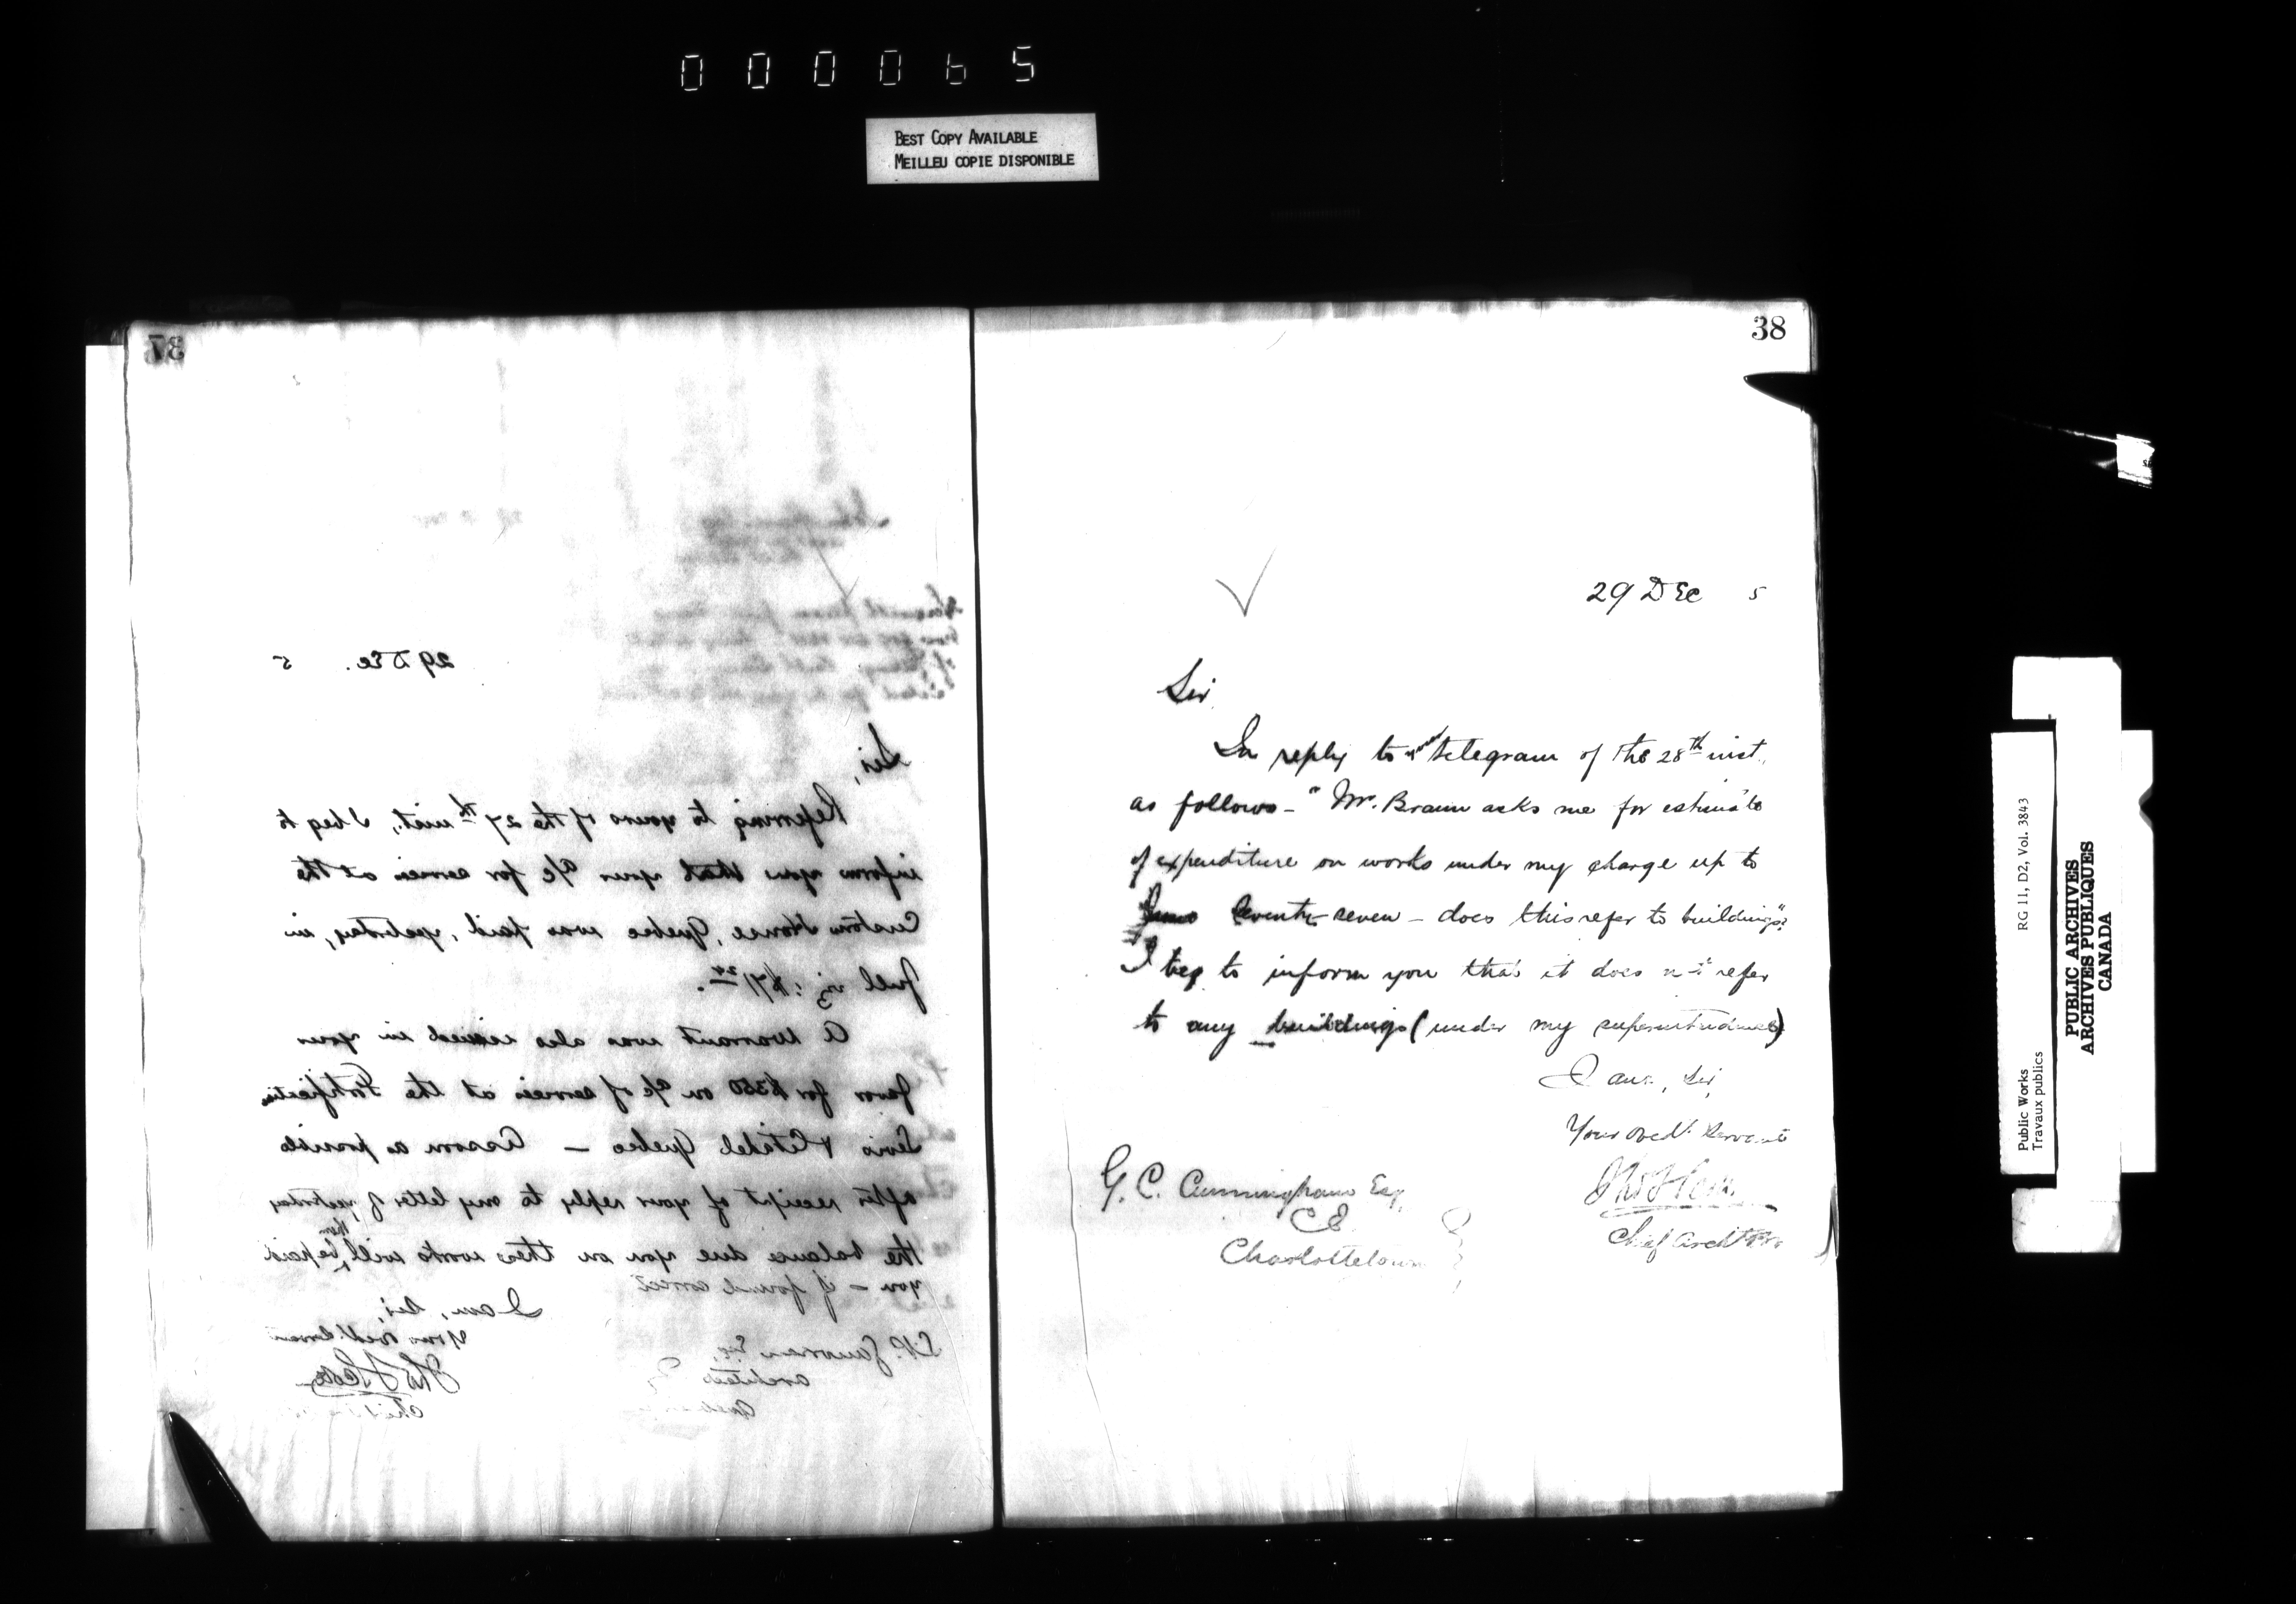 000065
BEST COPY AVAILABLE
MEILLEU COPIE DISPONIBLE
37
29 DEc. 5
Sir,
Referring to yours of the 27th inst., I beg to
inform you that your a/c for services at the
Custom House, Quebec was paid, yesterday, in
full viz: $71
A warrant was also issued in your
favor for $350 on a/c of services at the Fortifications
Levis & Citadel Quebec — As soon as possible
after receipt of your reply to my letter of yesterday
the balance due you on these works will then be paid
you — if found correct
I am, Sir,
Your Obedt Servant
Esq.
Architect
Chief
38
29 DEc 5
Sir,
In reply to your telegram of the 28th inst.,
as follows — "Mr. Braun asks me for estimate
of expenditure on works under my charge up to
June Seventy-seven — does this refer to buildings"?
I beg to inform you that it does not refer
to any buildings (under my superintendence)
I am, Sir,
Your Obedt Servant
Chief Architect
G. C. Cunningham Esq.
CE
Charlottetown
Public Works
Travaux publics
RG 11, D2, Vol. 3843
PUBLIC ARCHIVES
ARCHIVES PUBLIQUES
CANADA